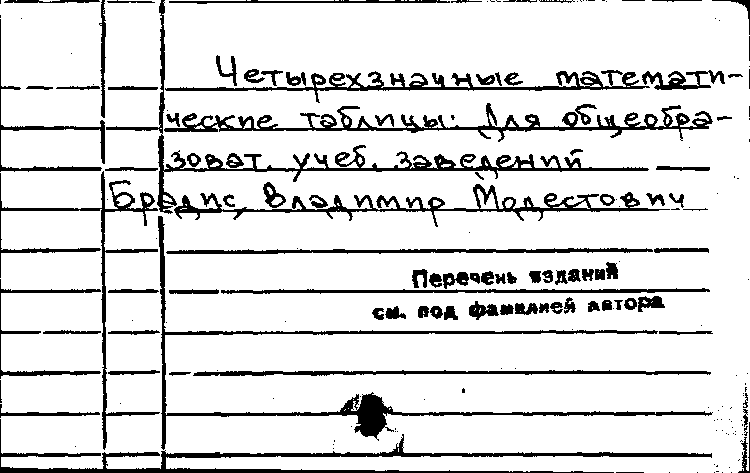 Четырехзначные математи-
ческие таблицы: Для общеобра-
зоват. учеб. заведений
Брадис, Владимир Модестович
Перечень изданий
см. под фамилией автора